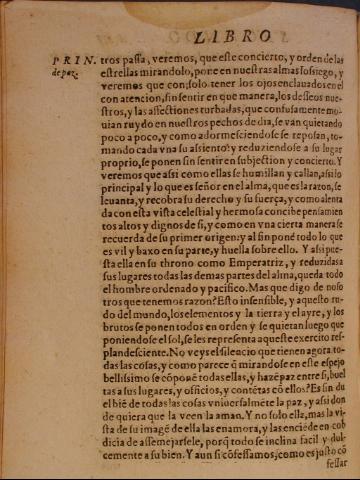 LIBRO
PRIN. tros passa, veremos, que este concierto, y orden de las
de paz. estrellas mirandolo, pone en nuestras almas sossiego, y
veremos que con solo tener los ojos enclauados en el
con atencion, sin sentir en que manera, los desseos nue-
stros, y las affectiones turbadas, que confusamente mo-
uian ruydo en nuestros pechos de dia, se van quietando
poco a poco, y como adormesciendose se reposan, to-
mando cada vna su assiento? y reduziendose a su lugar
proprio, se ponen sin sentir en subjection y concierto. Y
veremos que assi como ellas se humillan y callan, assi lo
principal y lo que es señor en el alma, que es la razon, se
leuanta, y recobra su derecho y su fuerça, y como alenta
da con esta vista celestial y hermosa concibe pensamien
tos altos y dignos de si, y como en vna cierta manera se
recuerda de su primer origen: y al fin poné todo lo que
es vil y baxo en su parte, y huella sobre ello. Y assi pue-
sta ella en su throno como Emperatriz, y reduzidas a
sus lugares todas las demas partes del alma, queda todo
el hombre ordenado y pacifico. Mas que digo de noso
tros que tenemos razon? Esto insensible, y aquesto ru-
do del mundo, los elementos y la tierra y el ayre, y los
brutos se ponen todos en orden y se quietan luego que
poniendose el sol, se les representa aqueste exercito res-
plandesciente. No veys el silencio que tienen agora to-
das las cosas, y como parece q̃ mirandose en este espejo
bellissimo se cõponẽ todas ellas, y hazẽ paz entre si, buel
tas a sus lugares, y officios, y contẽtas cõ ellos? Es sin du
el biẽ de todas las cosas vniuersalmẽte la paz, y assi don
de quiera que la veen la aman. Y no solo ella, mas la vi-
sta de su imagẽ de ella las enamora, y las enciẽde en cob
dicia de assemejarsele, porq̃ todo se inclina facil y dul-
cemente a su bien. Y aun si cõfessamos, como es justo cõ
fessar